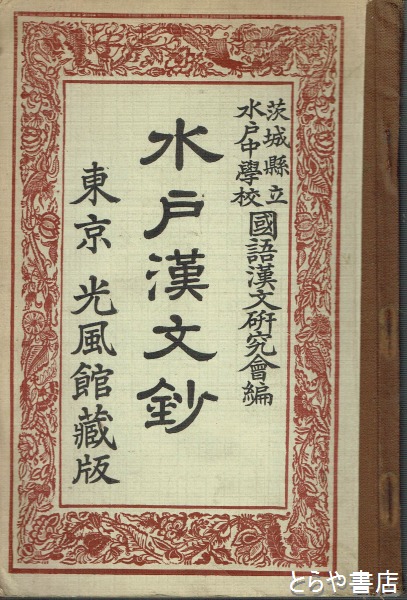 茨城縣立
水戸中學校
國語漢文研究會編
水戸漢文鈔
東京 光風館藏版
とらや書店